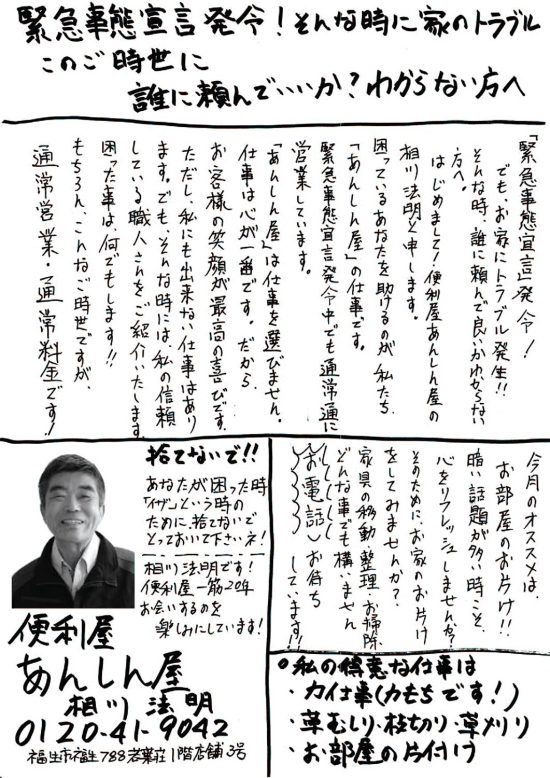 緊急事態宣言発令!そんな時に家のトラブル
このご時世に
誰に頼んでいいか?わからない方へ
「緊急事態宣言」発令!
でも、お家にトラブル発生!!
そんな時、誰に頼んで良いかわからない
方へ。
はじめまして!便利屋あんしん屋の
相川法明と申します。
困っているあなたを助けるのが私たち、
「あんしん屋」の仕事です。
緊急事態宣言発令中でも通常通に
営業しています。
「あんしん屋」は仕事を選びません。
仕事は心が一番です。だから
お客様の笑顔が最高の喜びです。
ただし、私にも出来ない仕事はあり
ます。でも、そんな時には、私の信頼
している職人さんをご紹介いたします。
困った事は、何でもします!!
もちろん、こんなご時世ですが、
通常営業・通常料金です!
今月のオススメは、
お部屋のお片付け!!
暗い話題が多い時こそ、
心をリフレッシュしませんか?
そのために、お家のお片付け
をしてみませんか?
家具の移動、整理、お掃除
どんな事でも構いません
お電話お待ち
しています!!
捨てないで!!
あなたが困った時
「イザ」という時の
ために、捨てないで
とっておいて下さいネ!
相川法明です!
便利屋一筋20年
お会いするのを
楽しみにしています!
便利屋
あんしん屋
相川 法明
0120-41-9042
福生市福生788若葉荘1階店舗3号
○私の得意な仕事は
・力仕事(力もちです!)
・草むしり・枝切り・草刈り
・お部屋の片付け